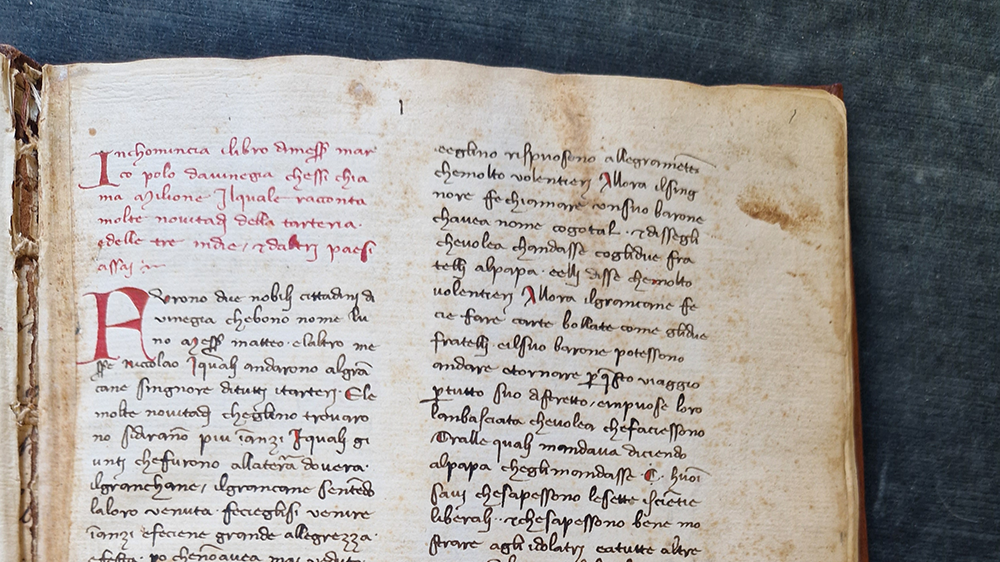 1
Inchomincia ilibro dimess̃ mar
co polo dauinegia chessi chia
ma Milione Ilquale racconta
molte nouitadj della tarteria·
edelle tre indie, ⁊ daltri paesi
assaj
Furono due nobilj cittadinj di
uinegia chebono nome lu
no mess̃ matteo· elaltro me
ss̃ Niccolao Iqualj andarono algrã
cane singnore dituttj itarterj· Ele
molte nouitadj cheglino trouaro
no sidirãno piu ĩanzj Iqualj gi
untj chefurono allatera douera·
ilgranchane, ilgrancane sentẽdo
laloro uenuta· feciegljsi uenire
ĩanzj efeciene grande allegrezza·
efesta· po chenõauea mai ueduto
eeglino rispuosono allegramẽte
chemolto uolentierj Allora ilsing
nore fe chiamare ·ronsuo barone
chauea nome cogotal· ⁊ dissegli
cheuolea chandasse coglidue fra
tellj alpapa· eellj disse chemolto
uolentierj Allora ilgrancane fe
cie fare carte bollate come glidue
fratellj· eilsuo barone potessono
andare etornare p̱ q̃sto uiaggio
p̱tutto suo distretto, empuose loro
lambasciata cheuolea chefaciessono
Tralle qualj mandaua diciendo
alpapa cheglimandasse ·C· huoĩ
sauj chesapessono lesette iscĩetie
liberalj· ⁊chesapessono bene mo
strare aglj idolatrj eatutte altre